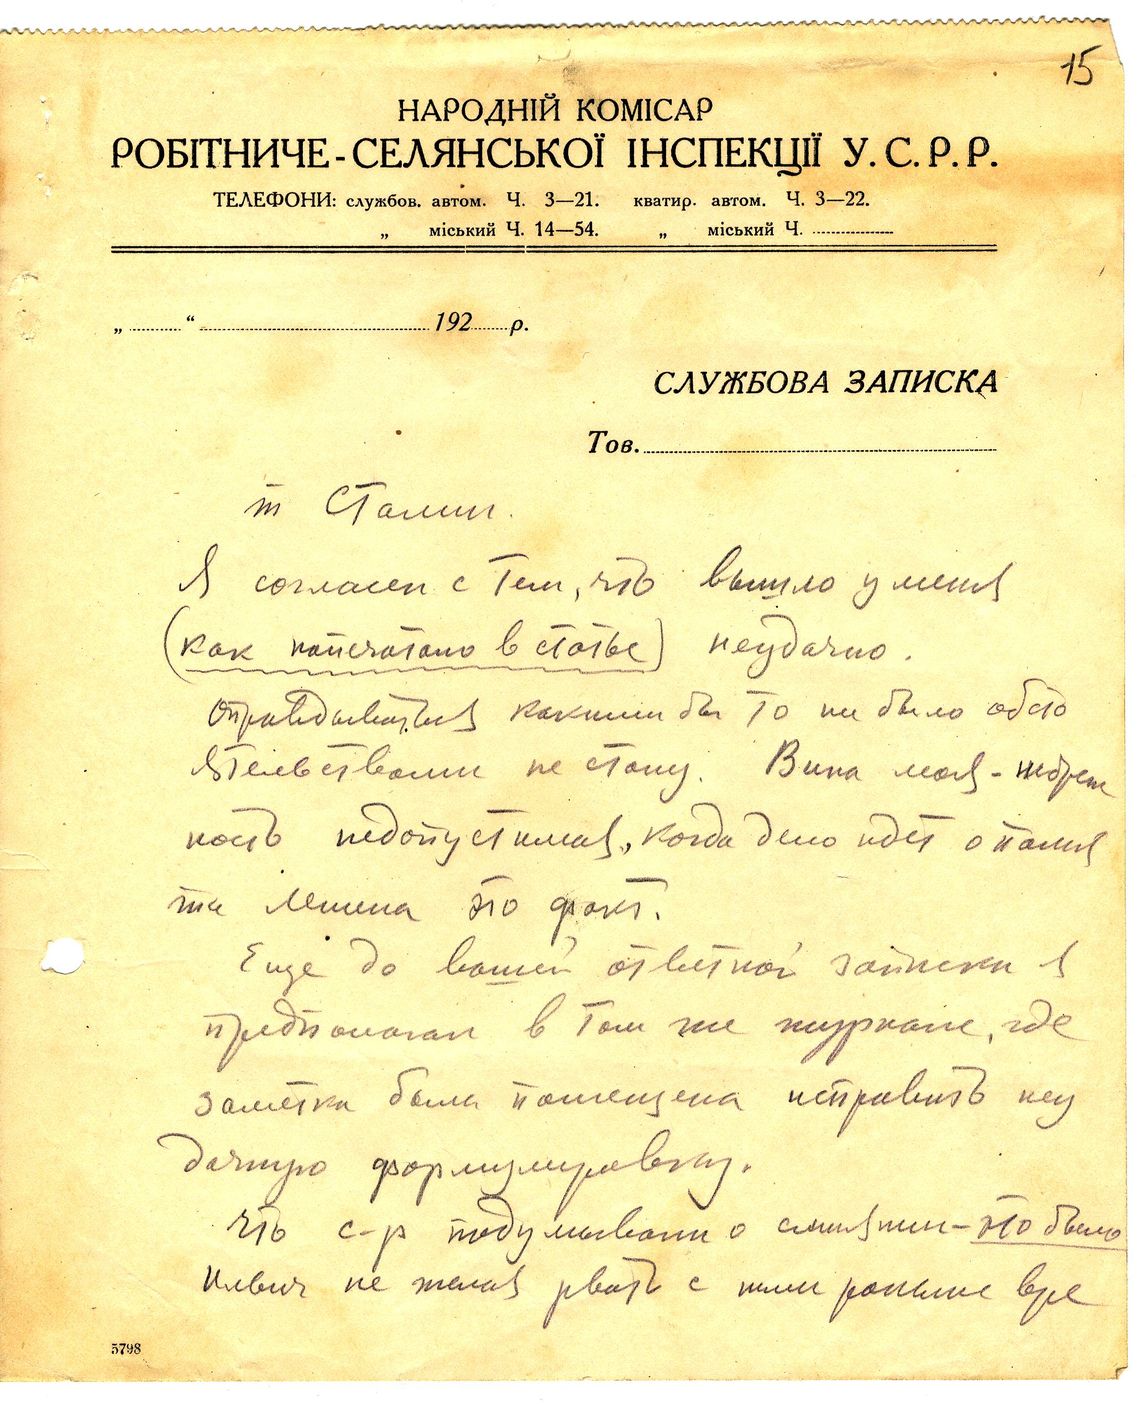 15
НАРОДНІЙ КОМІСАР
РОБІТНИЧЕ-СЕЛЯНСЬКОЇ ІНСПЕКЦІЇ У.С.Р.Р.
ТЕЛЕФОНИ: службов. автом. Ч. 3—21. кватир. автом. Ч. 3—22.
„ міський Ч. 14—54. „ міський Ч. ....................
„............“ ............................................ 192........р.
СЛУЖБОВА ЗАПИСКА
Тов. ............................................
т Сталин.
Я согласен с тем, что вышло у меня
(как напечатано в статье) неудачно.
Оправдываться какими бы то ни было обсто
ятельствами не стану. Вина моя - небреж
ность недопустимая, когда дело идет о памя
ти Ленина это факт.
Еще до вашей ответной записки я
предполагал в том же журнале, где
заметка была помещена исправить неу
дачную формулировку.
Что с-р подумывали о слиянии - это было
Ильич не желая рвать с ними раньше вре
5798